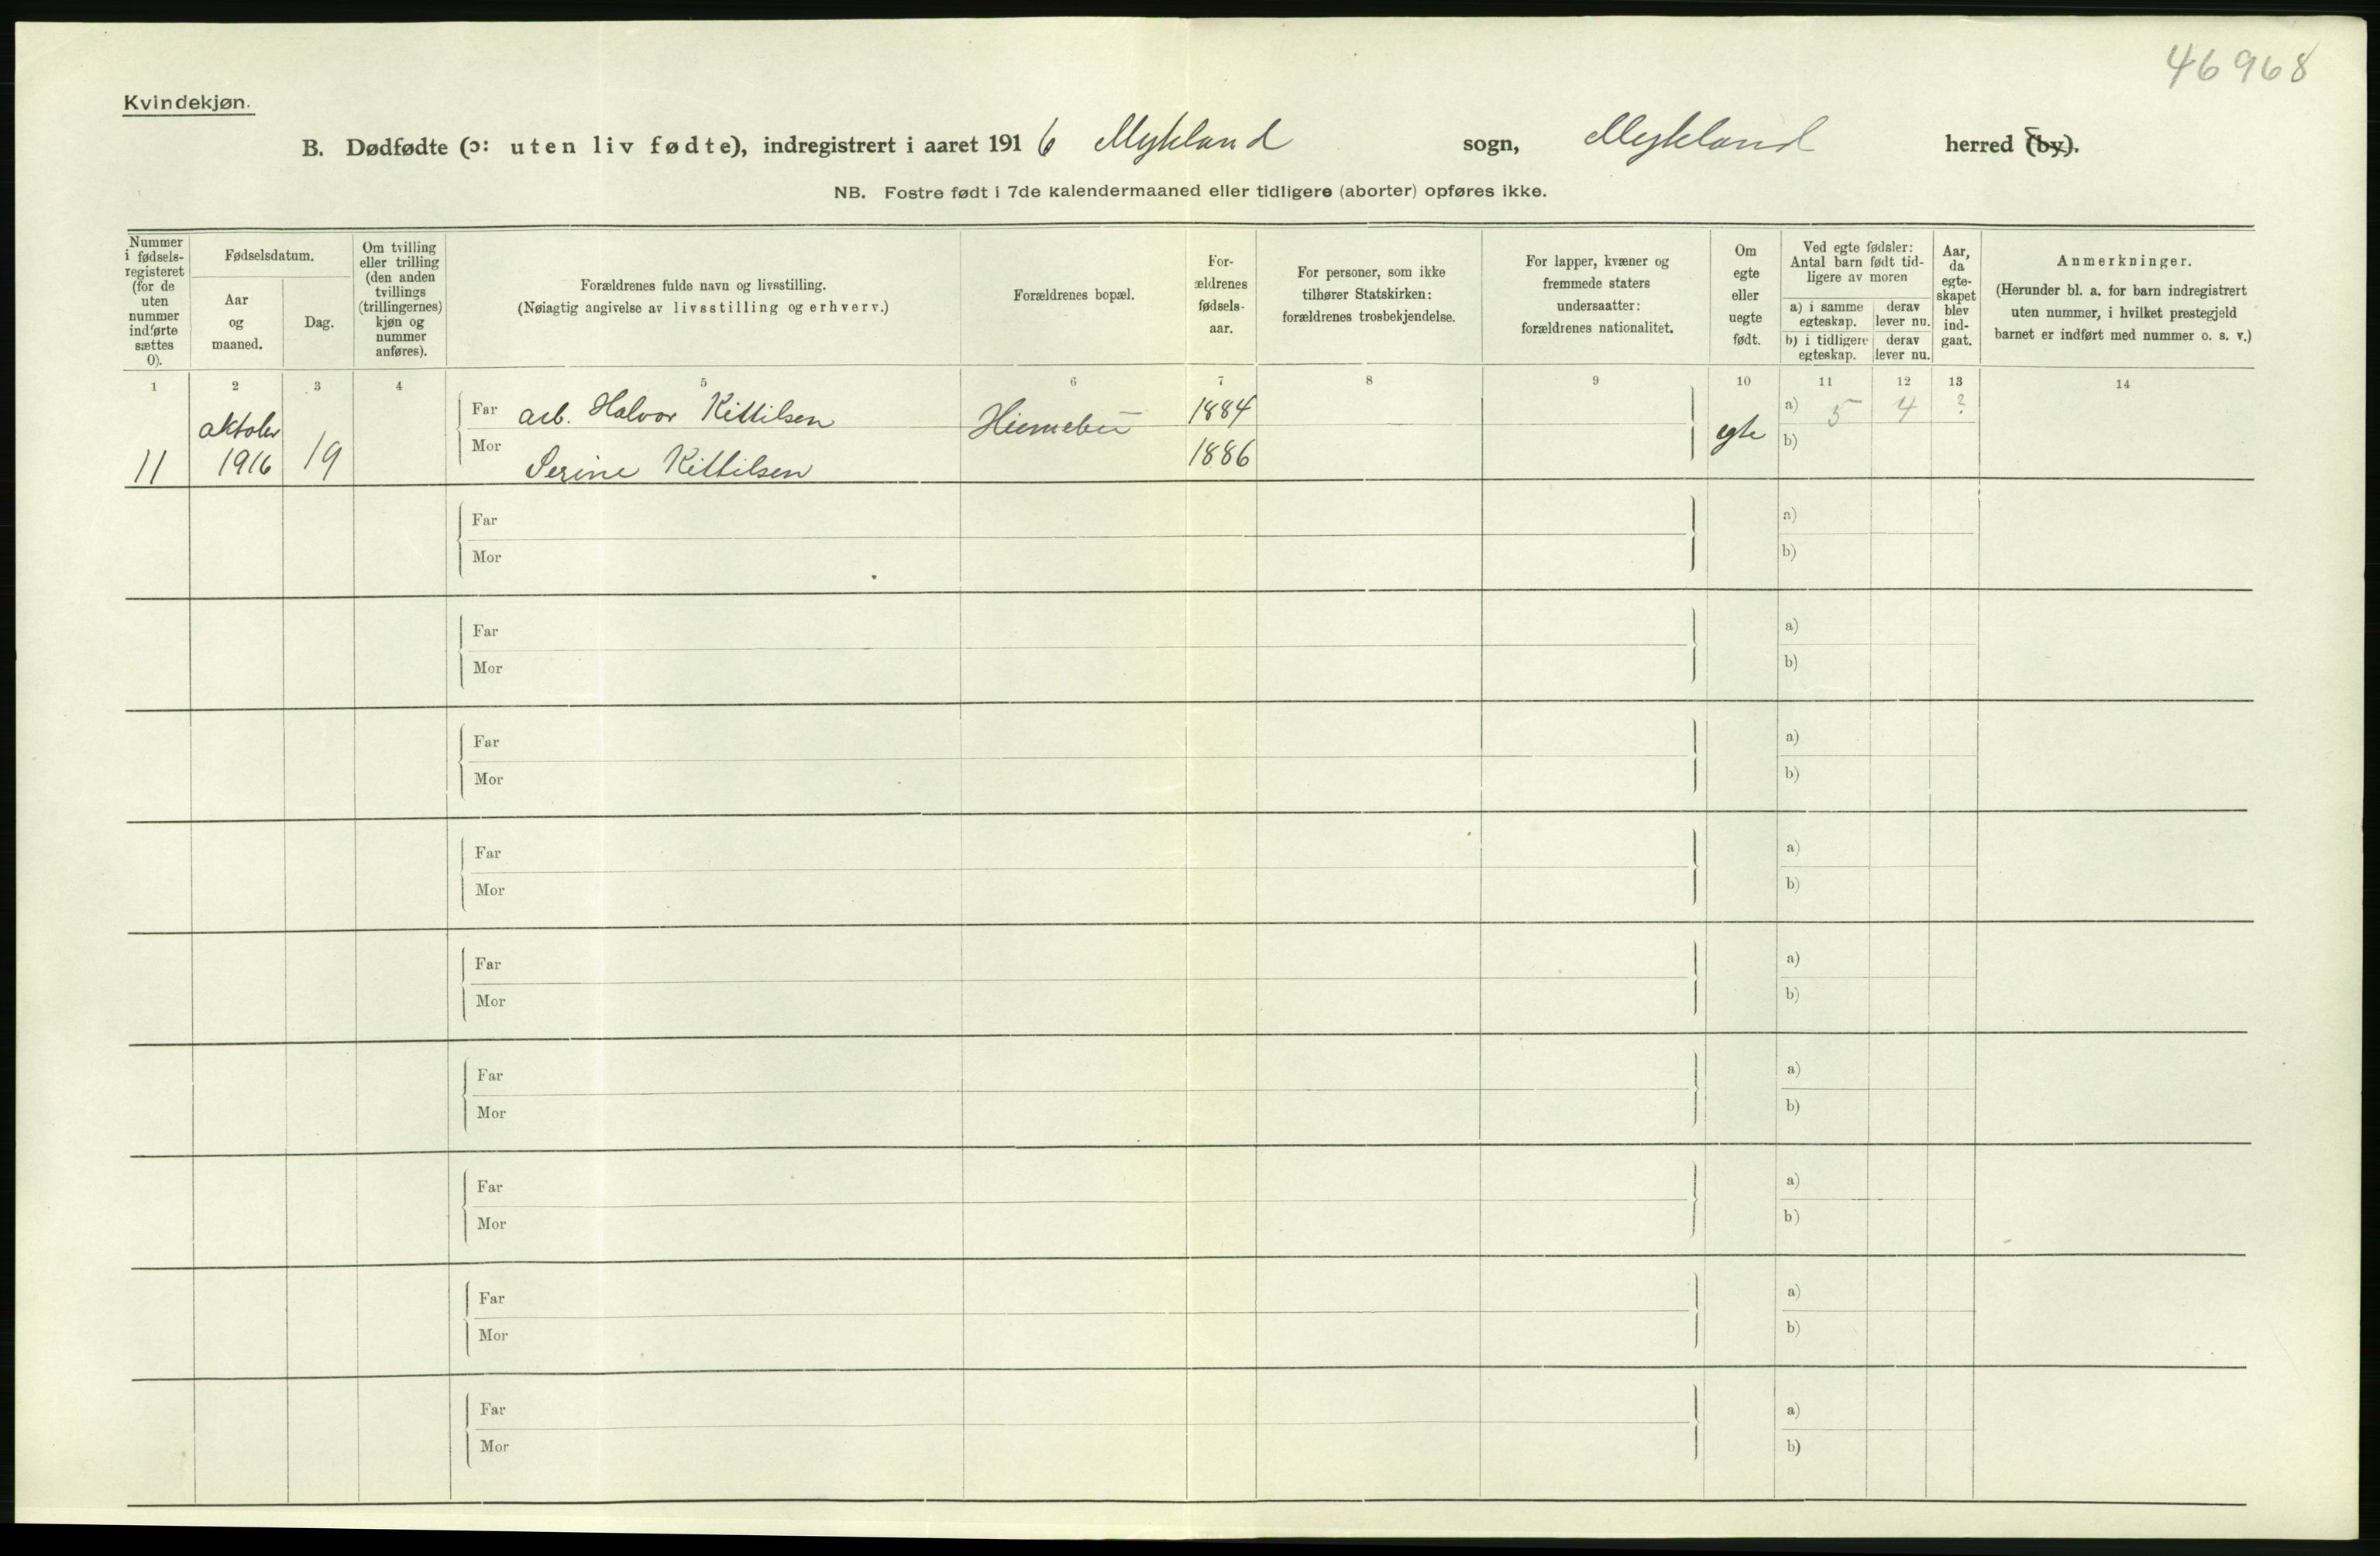 46968
Kvindekjøn.
B. Dødfødte (ɔ: uten liv fødte), indregistrert i aaret 1916 Mykland sogn, Mykland herred (by).
NB. Fostre født i 7de kalendermaaned eller tidligere (aborter) opføres ikke.
Nummer i fødsels-registeret (for de uten nummer indførte sættes 0).
Fødselsdatum.
Aar og maaned.
Dag.
Om tvilling eller trilling (den anden tvillings (trillingernes) kjøn og nummer anføres).
Forældrenes fulde navn og livsstilling.
(Nøiagtig angivelse av livsstilling og erhverv.)
Forældrenes bopæl.
For-ældrenes fødsels-aar.
For personer, som ikke tilhører Statskirken: forældrenes trosbekjendelse.
For lapper, kvæner og fremmede staters undersaatter: forældrenes nationalitet.
Om egte eller uegte født.
Ved egte fødsler: Antal barn født tid-ligere av moren
a) i samme egteskap.
derav lever nu.
b) i tidligere egteskap.
derav lever nu.
Aar, da egte-skapet blev ind-gaat.
Anmerkninger.
(Herunder bl. a. for barn indregistrert uten nummer, i hvilket prestegjeld barnet er indført med nummer o. s. v.)
1 2 3 4 5 6 7 8 9 10 11 12 13 14
11 oktober 1916 19
Far arb. Halvor Kittilsen 1884 egte a) 5 4 ?
Mor Serine Kittilsen 1886 b)
Far a)
Mor b)
Far a)
Mor b)
Far a)
Mor b)
Far a)
Mor b)
Far a)
Mor b)
Far a)
Mor b)
Far a)
Mor b)
Far a)
Mor b)
Far a)
Mor b)